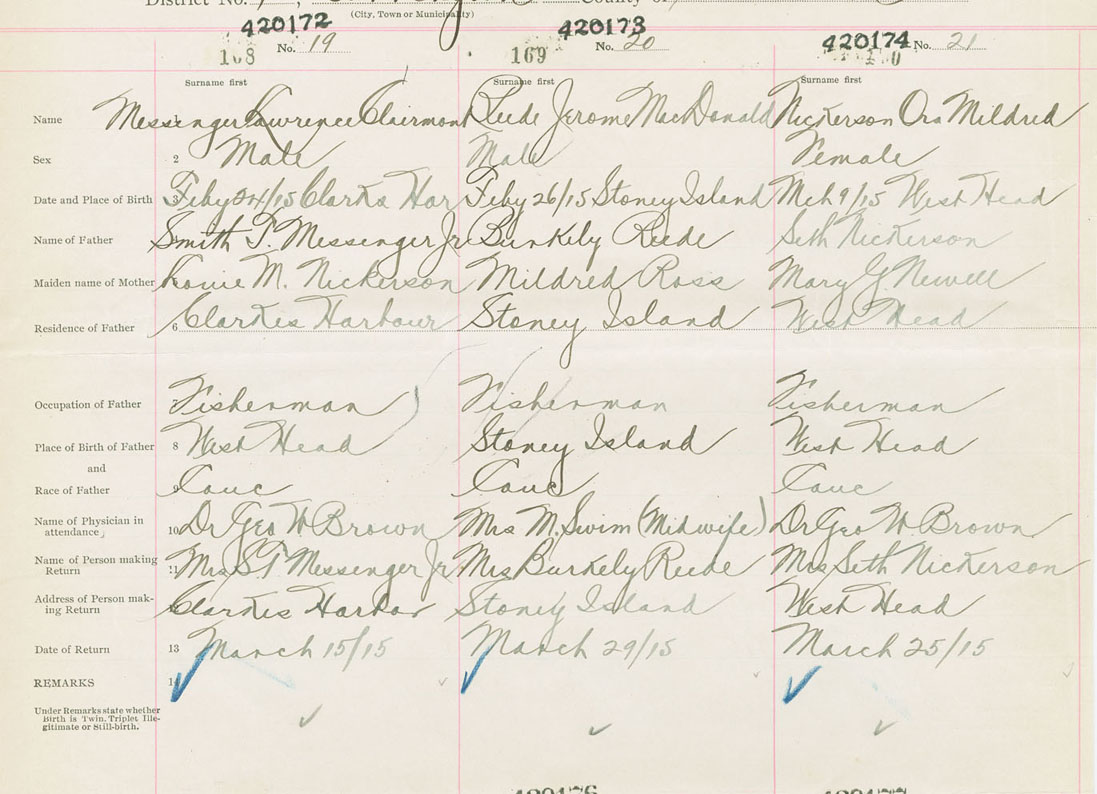 District No.
County of
(City, Town or Municipality)
420172 420173 420174
No. 19 No. 20 No. 21
168 169
Surname first Surname first Surname first
Name Messenger Lawrence Clairmont Reede Jerome MacDonald Nickerson Ora Mildred
Sex 2 Male Male Female
Date and Place of Birth 3 Feby 24/15 Clarks Har Feby 26/15 Stoney Island Mch 9/15 West Head
Name of Father Smith T. Messenger Jr Burkely Reede Seth Nickerson
Maiden name of Mother M. Nickerson Mildred Ross Mary G. Newell
Residence of Father 6 Clarkes Harbour Stoney Island West Head
Occupation of Father 7 Fisherman Fisherman Fisherman
Place of Birth of Father 8 West Head Stoney Island West Head
and
Race of Father 9 Cauc Cauc Cauc
Name of Physician in
attendance 10 Dr Geo W Brown Mrs M. Swim (Midwife) Dr Geo W. Brown
Name of Person making
Return 11 Mrs S T Messenger Jr Mrs Burkely Reede Mrs Seth Nickerson
Address of Person mak-
ing Return Clarkes Harbor Stoney Island West Head
Date of Return 13 March 15/15 March 29/15 March 25/15
REMARKS 14
Under Remarks state whether
Birth is Twin, Triplet Ille-
gitimate or Still-birth.